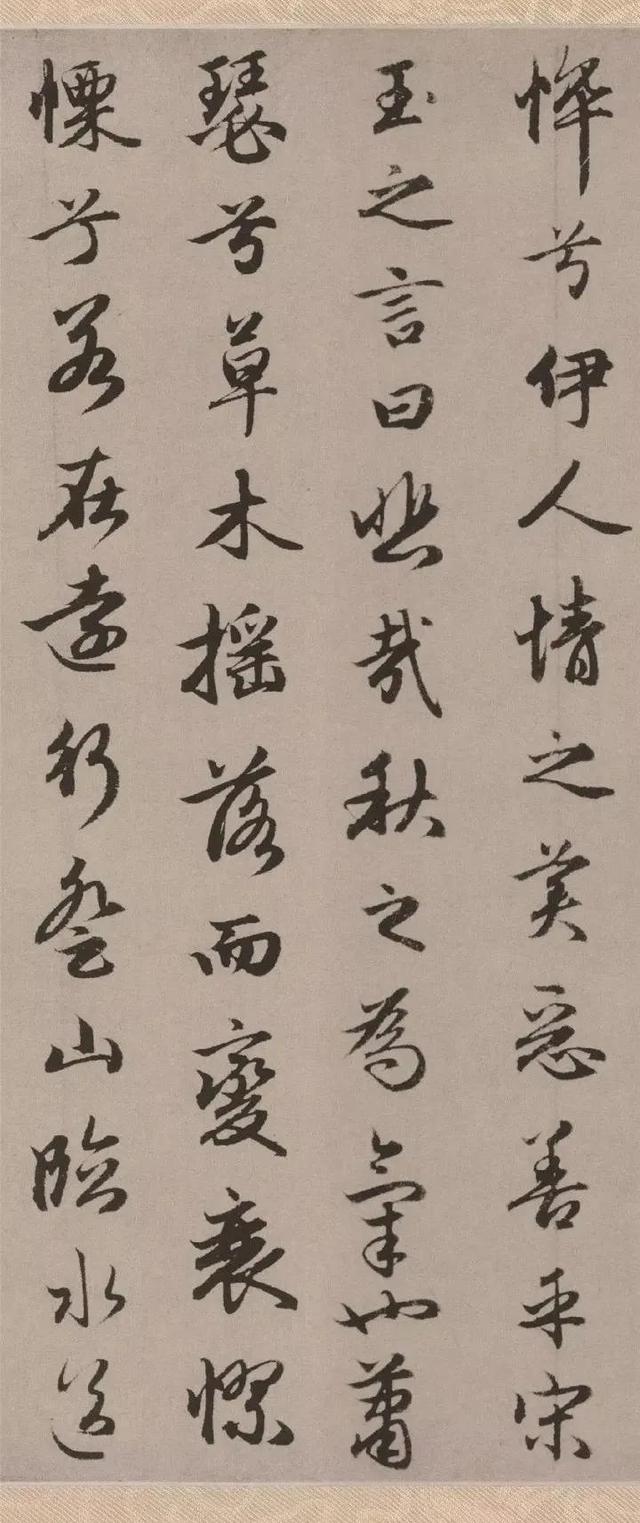 悴兮伊人情之美惡善乎宋
玉之言曰悲哉秋之為氣也蕭
瑟兮草木搖落而變衰憀
慄兮若在遠行登山臨水送